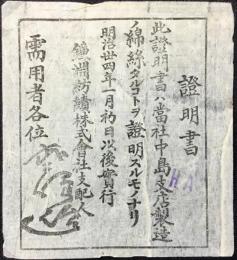 證明書
此證明書ハ當社中島支店製造
ノ綿絲タルコトヲ證明スルモノナリ
明治卅四年一月初日以後實行
鐘淵紡績株式會社支配人
需用者各位
HA